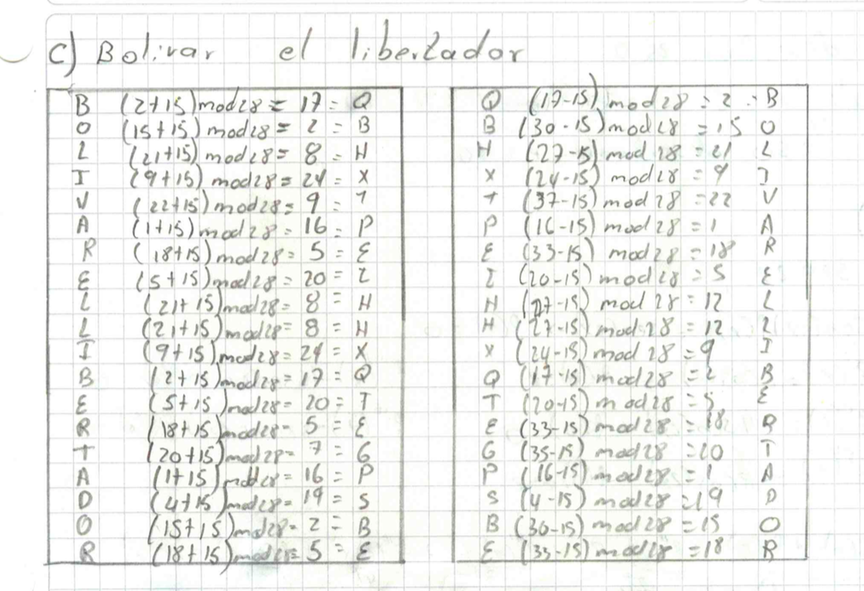 c) Bolivar el libertador
B (2+15) mod28 = 17 = Q
O (15+15) mod28 = 2 = B
L (21+15) mod28 = 8 = H
I (9+15) mod28 = 24 = X
V (22+15) mod28 = 9 = 1
A (1+15) mod28 = 16 = P
R (18+15) mod28 = 5 = E
E (5+15) mod28 = 20 = Z
L (21+15) mod28 = 8 = H
L (21+15) mod28 = 8 = H
I (9+15) mod28 = 24 = X
B (2+15) mod28 = 17 = Q
E (5+15) mod28 = 20 = T
R (18+15) mod28 = 5 = E
T (20+15) mod28 = 7 = G
A (1+15) mod28 = 16 = P
D (4+15) mod28 = 19 = S
O (15+15) mod28 = 2 = B
R (18+15) mod28 = 5 = E
Q (17-15) mod28 = 2 = B
B (30-15) mod28 = 15 O
H (27-15) mod 28 = 21 L
X (24-15) mod 28 = 9 I
+ (37-15) mod 28 = 22 V
P (16-15) mod 28 = 1 A
E (33-15) mod 28 = 18 R
I (20-15) mod 28 = 5 E
H (27-15) mod 28 = 12 L
H (27-15) mod 28 = 12 L
X (24-15) mod 28 = 9 I
Q (17-15) mod 28 = 2 B
T (20-15) mod28 = 5 E
E (33-15) mod 28 = 18 R
G (35-15) mod 28 = 20 T
P (16-15) mod28 = 1 A
S (4-15) mod28 = 19 D
B (30-15) mod28 = 15 O
E (33-15) mod28 = 18 R